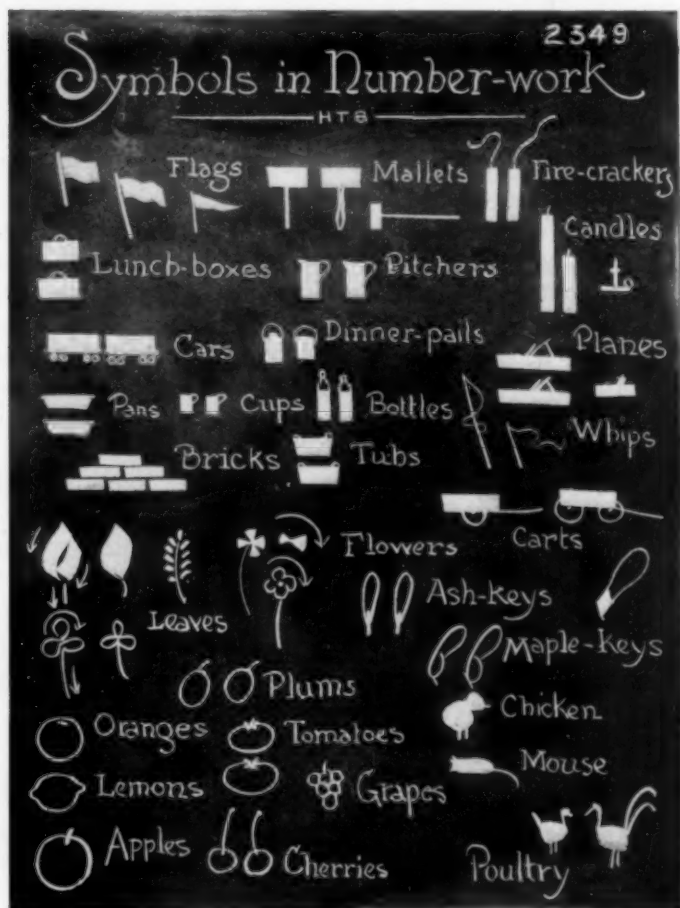 2349
Symbols in Number-work
HTB
Flags
Mallets
Fire-crackers
Candles
Lunch-boxes
Pitchers
Cars
Dinner-pails
Planes
Pans
Cups
Bottles
Whips
Bricks
Tubs
Carts
Flowers
Leaves
Ash-keys
Maple-keys
Plums
Chicken
Oranges
Tomatoes
Mouse
Lemons
Grapes
Apples
Cherries
Poultry